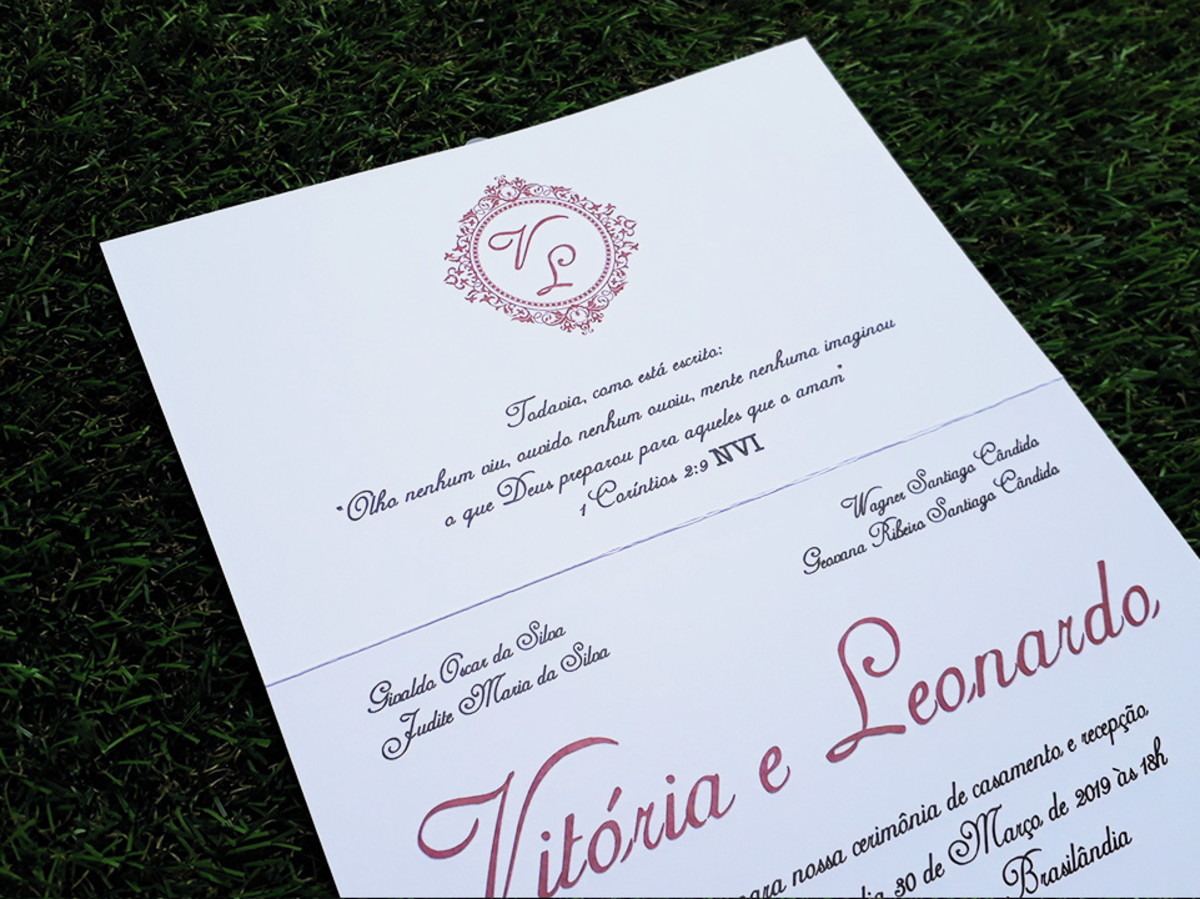 V L
Todavia, como está escrito:
"Olho nenhum viu, ouvido nenhum ouviu, mente nenhuma imaginou
o que Deus preparou para aqueles que o amam"
1 Coríntios 2:9 NVI
Givaldo Oscar da Silva
Judite Maria da Silva
Wagner Santiago Cândido
Geovana Ribeiro Santiago Cândido
Vitória e Leonardo,
para nossa cerimônia de casamento e recepção,
dia 30 de Março de 2019 às 18h
Brasilândia